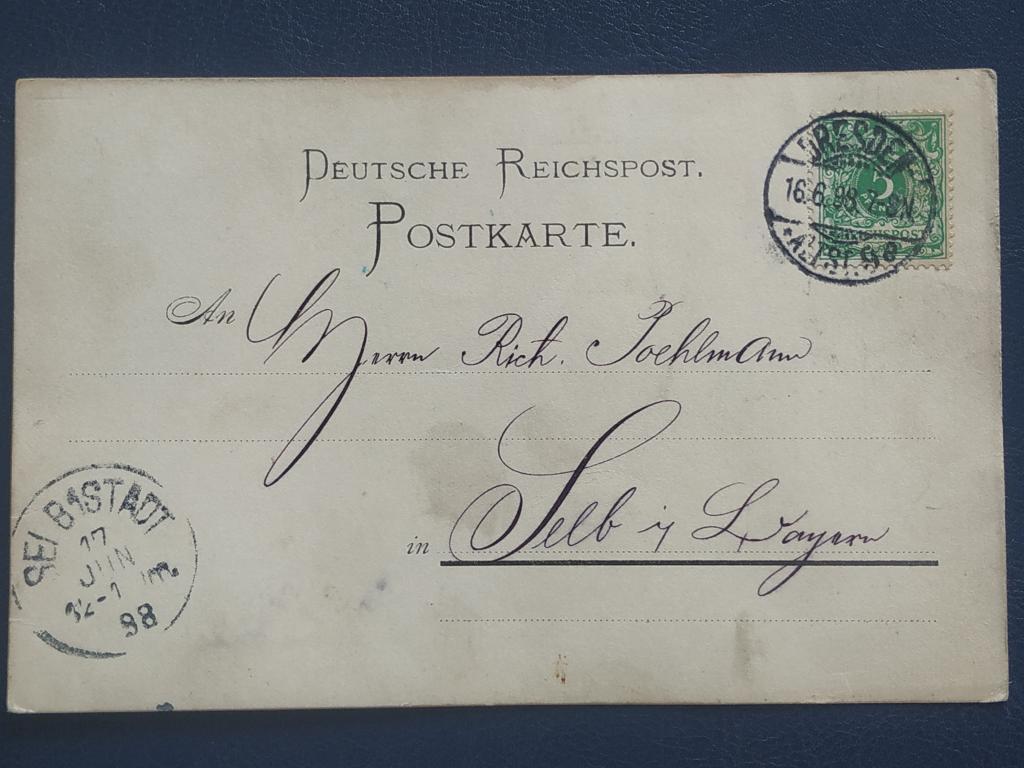 DEUTSCHE REICHSPOST.
POSTKARTE.
DRESDEN
16.6.98. 7-8N.
ALTST. 9 8
5
REICHSPOST
An Herrn Rich. Poehlmann
in Selb i/ Bayern
SELB 1 STADT
17
JUN
12-1
98